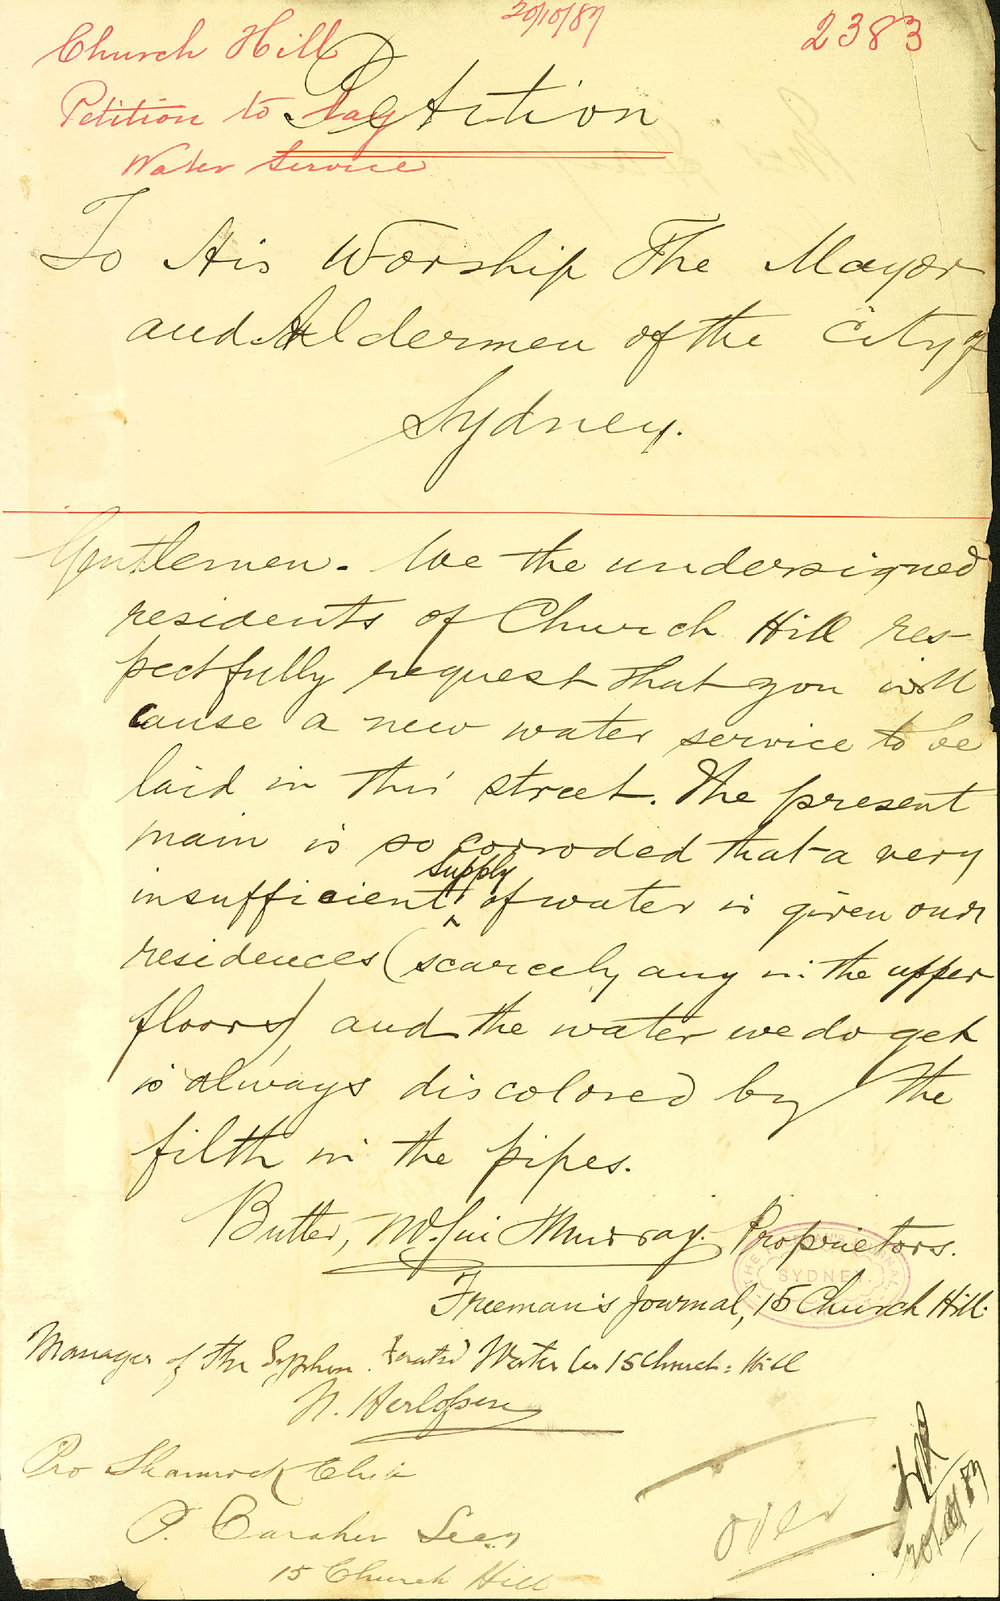 20/10/87
2383
Church Hill
Petition to lay
Water Service
Petition
To His Worship The Mayor
and Aldermen of the City of
Sydney.
Gentlemen. We the undersigned
residents of Church Hill res-
pectfully request that you will
cause a new water service to be
laid in this street. The present
main is so corroded that a very
insufficient supply of water is given our
residences (scarcely any in the upper
floors) and the water we do get
is always discolored by the
filth in the pipes.
Butler, Murray. Proprietors.
Freeman's Journal, 15 Church Hill.
SYDNEY
Manager of the Syphon Water Co 15 Church Hill
Pro Shamrock Club
P. Caraher Secy
15 Church Hill
over